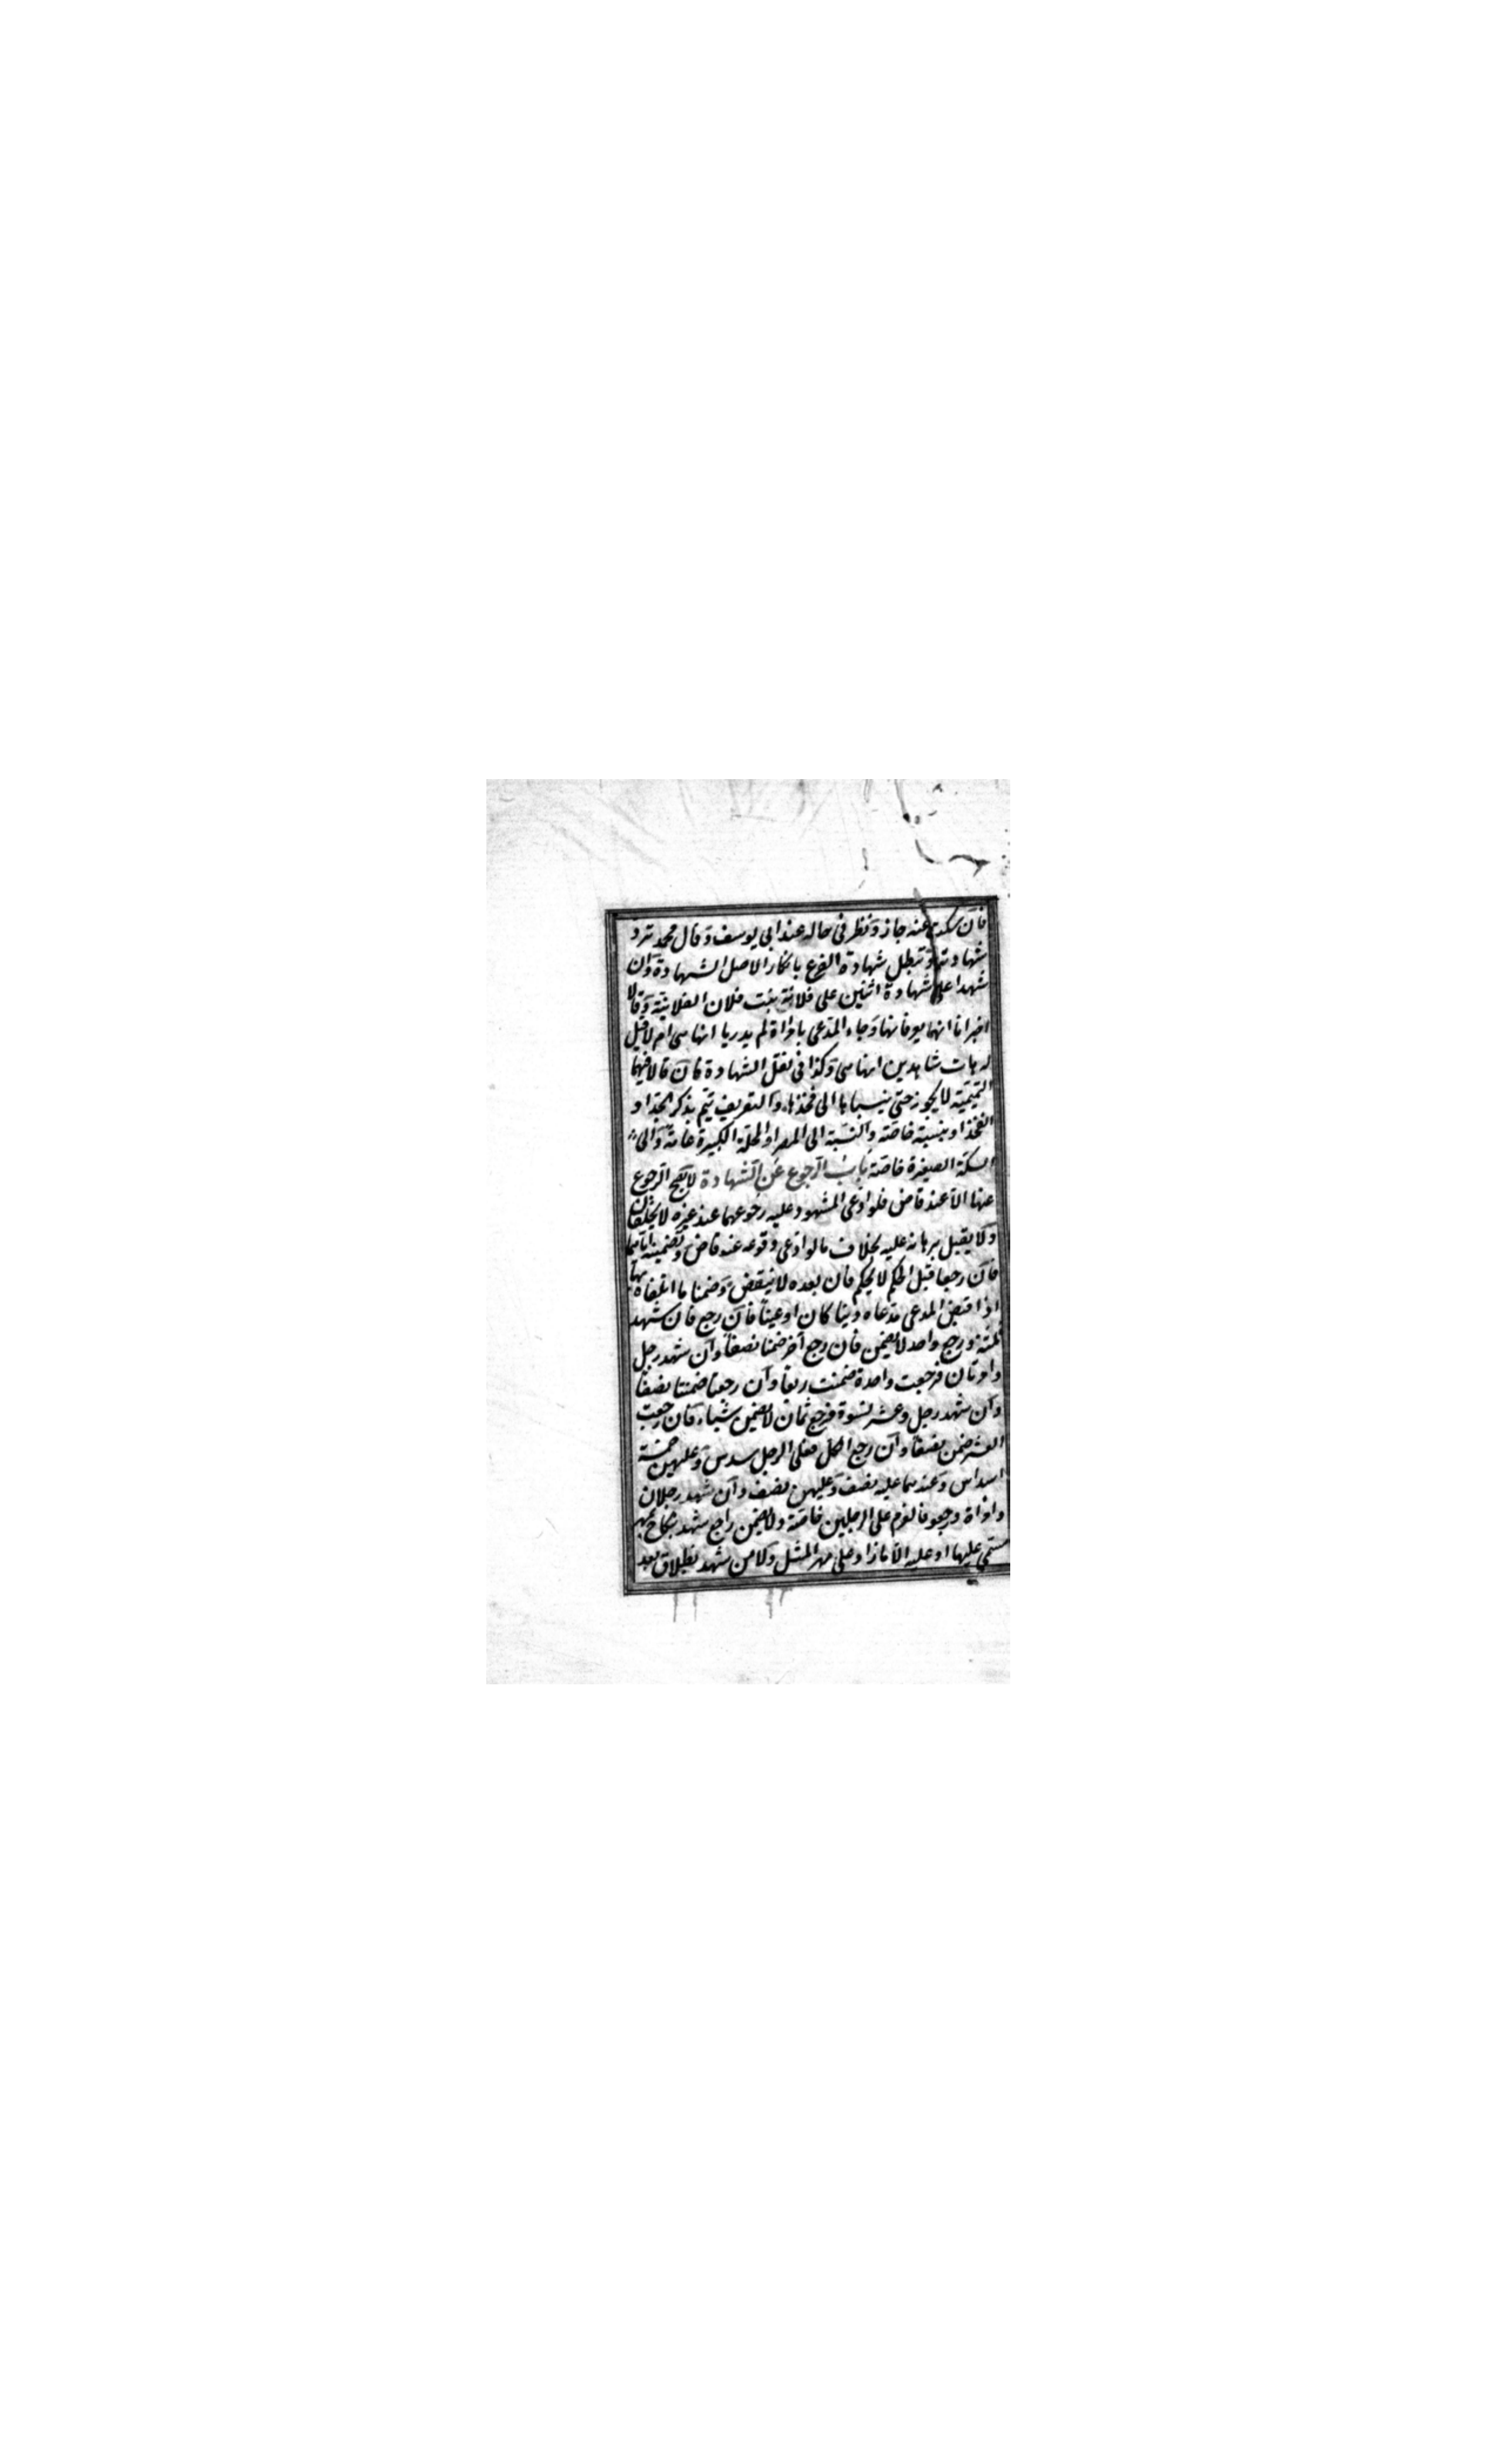 فان سكت عنه جاز ونظر في حاله عند ابي يوسف وقال محمد ترد
شهادته وتبطل شهادة الفرع بانكار الاصل الشهادة وان
شهدا على شهادة اثنين على فلانة بنت فلان الفلانية وقالا
اخبرانا انهما يعرفانها وجاء المدعى بامراة لم يدريا انها هى ام لا قيل
له هات شاهدين انها هى وكذا فى نقل الشهادة فان قالا فيهما
التميمية لا يجوز حتى ينسباها الى فخذها والتعريف يتم بذكر الجد او
الفخذ او بنسبة خاصة والنسبة الى المصر او المحلة الكبيرة عامة والى
السكة الصغيرة خاصة باب الرجوع عن الشهادة لا يصح الرجوع
عنها الا عند قاض فلو ادعى المشهود عليه رجوعهما عند غيره لا يحلفان
ولا يقبل برهانه عليه بخلاف ما لو ادعى وقوعه عند قاض وتضمينه اياهما
فان رجعا قبل الحكم لا يحكم فان بعده لا ينقض وضمنا ما اتلفاه بها
اذا قبض المدعى مدعاه دينا كان او عينا فان رجع فان شهد
ثلثة ورجع واحد لا يضمن فان رجع آخر ضمنا نصفا وان شهد رجل
وامرتان فرجعت واحدة ضمنت ربعا وان رجعتا ضمنتا نصفا
وان شهد رجل وعشر نسوة فرجع ثمان لا يضمن شيئا فان رجعت
العشر ضمن نصفا وان رجع الكل فعلى الرجل سدس وعليهن خمسة
اسداس وعندهما عليه نصف وعليهن نصف وان شهد رجلان
وامراة ورجعوا فالغرم على الرجلين خاصة ولا يضمن راجع شهد بنكاح بمهر
مسمى عليها او عليه الا ما زاد على مهر المثل ولا من شهد بطلاق بعد